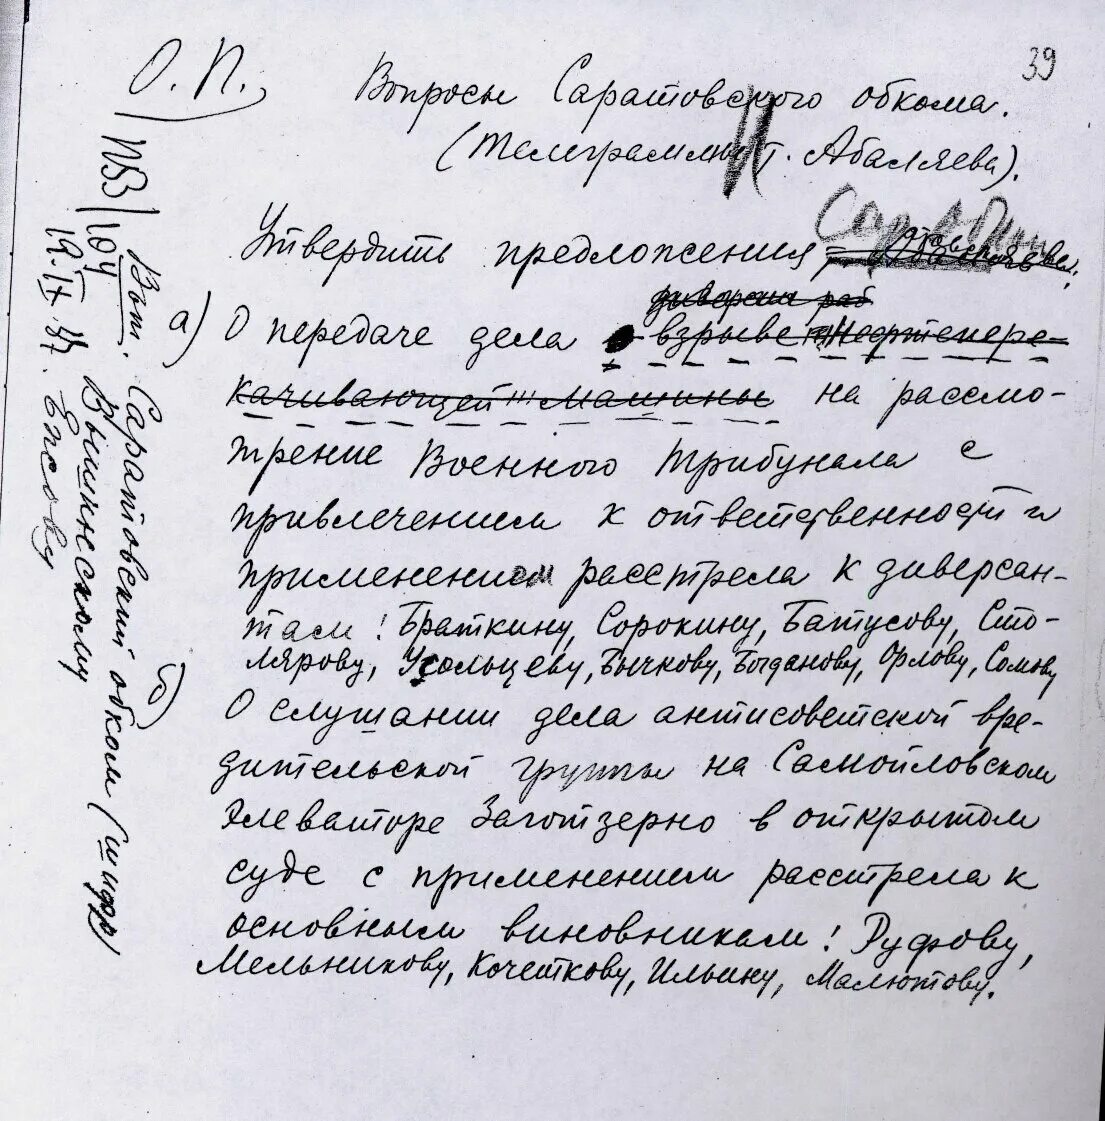 39
О. П.
Вопросы Саратовского обкома.
(Телеграммы т. Абаляева).
Утвердить предложения
а) О передаче дела о взрыве нефтепере-
качивающей машины на рассмо-
трение Военного Трибунала с
привлечением к ответственности и
применением расстрела к диверсан-
там: Браткину, Сорокину, Батусову, Сто-
лярову, Усольцеву, Бычкову, Богданову, Орлову, Сомову
б) О слушании дела антисоветской вре-
дительской группы на Самойловском
элеваторе Заготзерно в открытом
суде с применением расстрела к
основным виновникам: Руфову,
Мельникову, Кочеткову, Ильину, Малютову.
П53/104
19.IX.37.
Вып. Саратовский обком (шифр)
Вышинскому